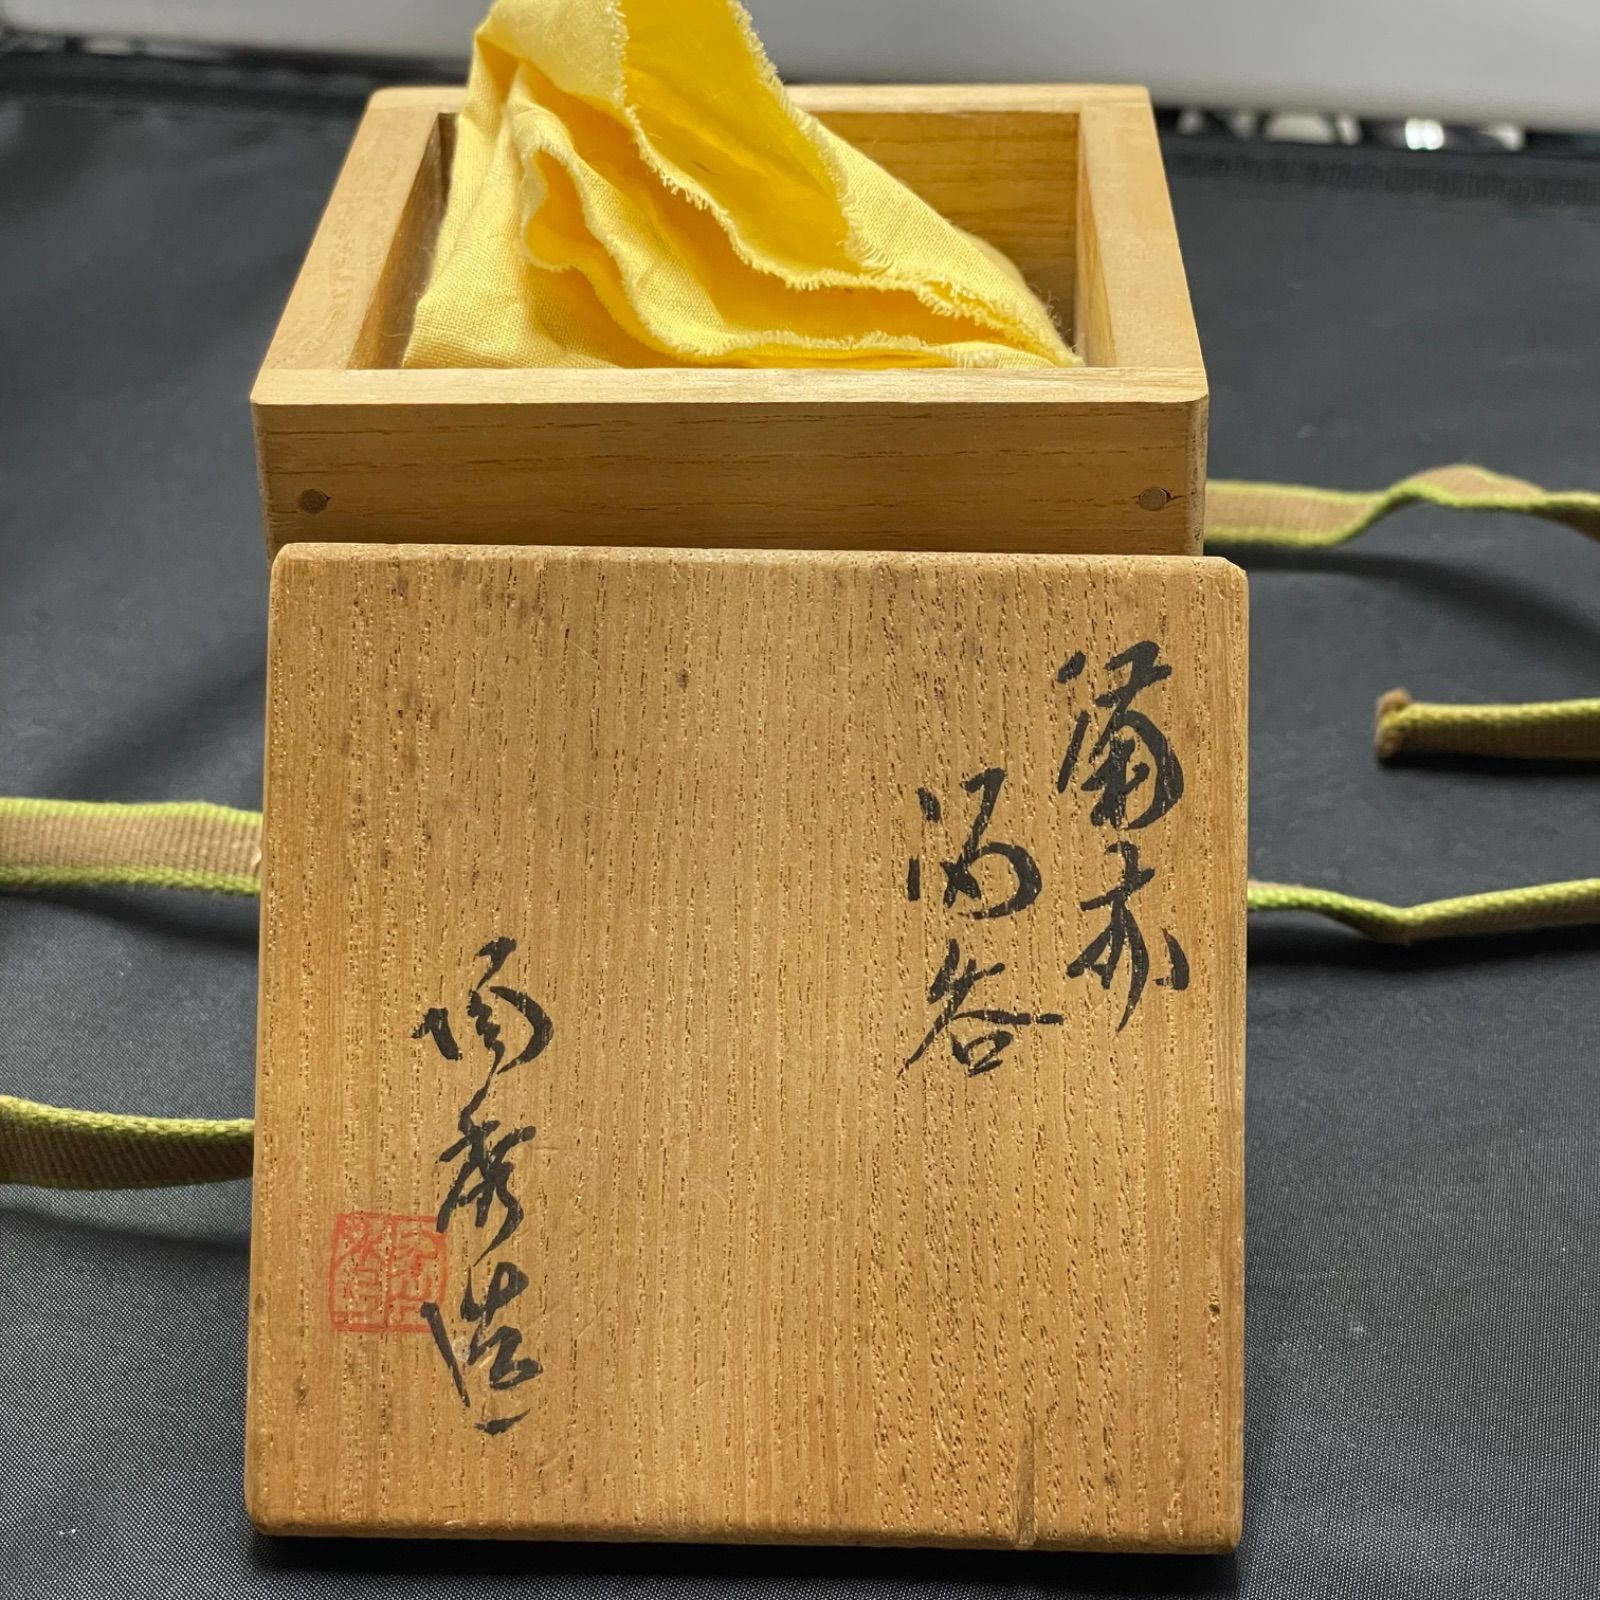 備前
酒呑
陶秀造